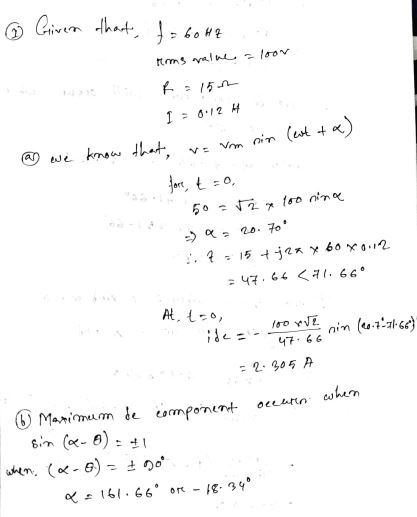 ② Given that, f = 60 HZ
rms value = 100v
R = 15 Ω
I = 0.12 H
(a) we know that, v = vm sin (ωt + α)
for, t = 0,
50 = √2 × 100 sin α
⇒ α = 20.70°
∴ Z = 15 + j2π × 60 × 0.12
= 47.66 < 71.66°
At, t = 0,
idc = - 100×√2 / 47.66 sin (20.7°-71.66°)
= 2.305 A
(b) Maximum dc component occurs when
sin (α - θ) = ±1
when, (α - θ) = ± 90°
α = 161.66° or - 18.34°